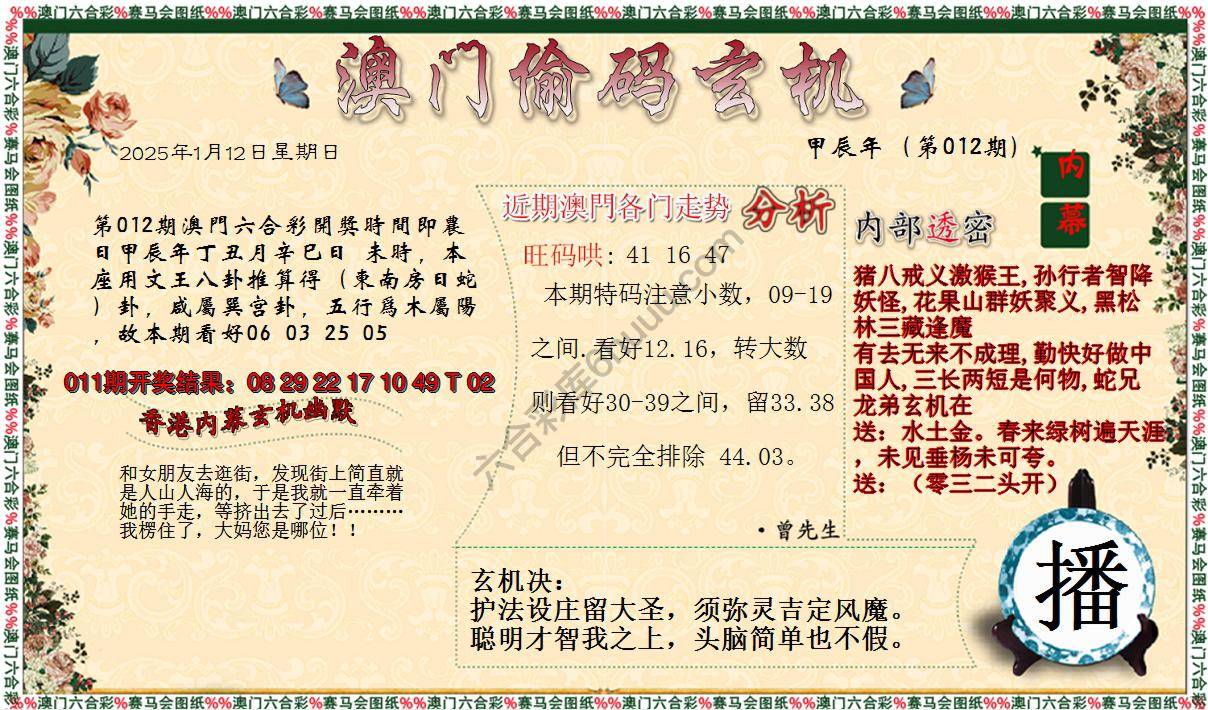 %%澳门六合彩%赛马会图纸%%澳门六合彩%赛马会图纸%%澳门六合彩%赛马会图纸%%澳门六合彩%赛马会图纸%%澳门六合彩%赛马会图纸%%澳门六合彩%赛马会图纸%%
澳门偷码玄机
2025年1月12日星期日
甲辰年（第012期）
内
幕
第012期澳門六合彩開獎時間即農
日甲辰年丁丑月辛巳日 未時，本
座用文王八卦推算得（東南房日蛇
）卦，咸屬巽宮卦，五行爲木屬陽
，故本期看好06 03 25 05
011期开奖结果：08 29 22 17 10 49 T 02
香港内幕玄机幽默
和女朋友去逛街，发现街上简直就
是人山人海的，于是我就一直牵着
她的手走，等挤出去了过后………
我楞住了，大妈您是哪位！！
近期澳門各门走势 分析
旺码哄: 41 16 47
本期特码注意小数，09-19
之间.看好12.16，转大数
则看好30-39之间，留33.38
但不完全排除 44.03。
·曾先生
内部透密
猪八戒义激猴王,孙行者智降
妖怪,花果山群妖聚义,黑松
林三藏逢魔
有去无来不成理,勤快好做中
国人,三长两短是何物,蛇兄
龙弟玄机在
送：水土金。春来绿树遍天涯
，未见垂杨未可夸。
送：（零三二头开）
玄机决：
护法设庄留大圣，须弥灵吉定风魔。
聪明才智我之上，头脑简单也不假。
播